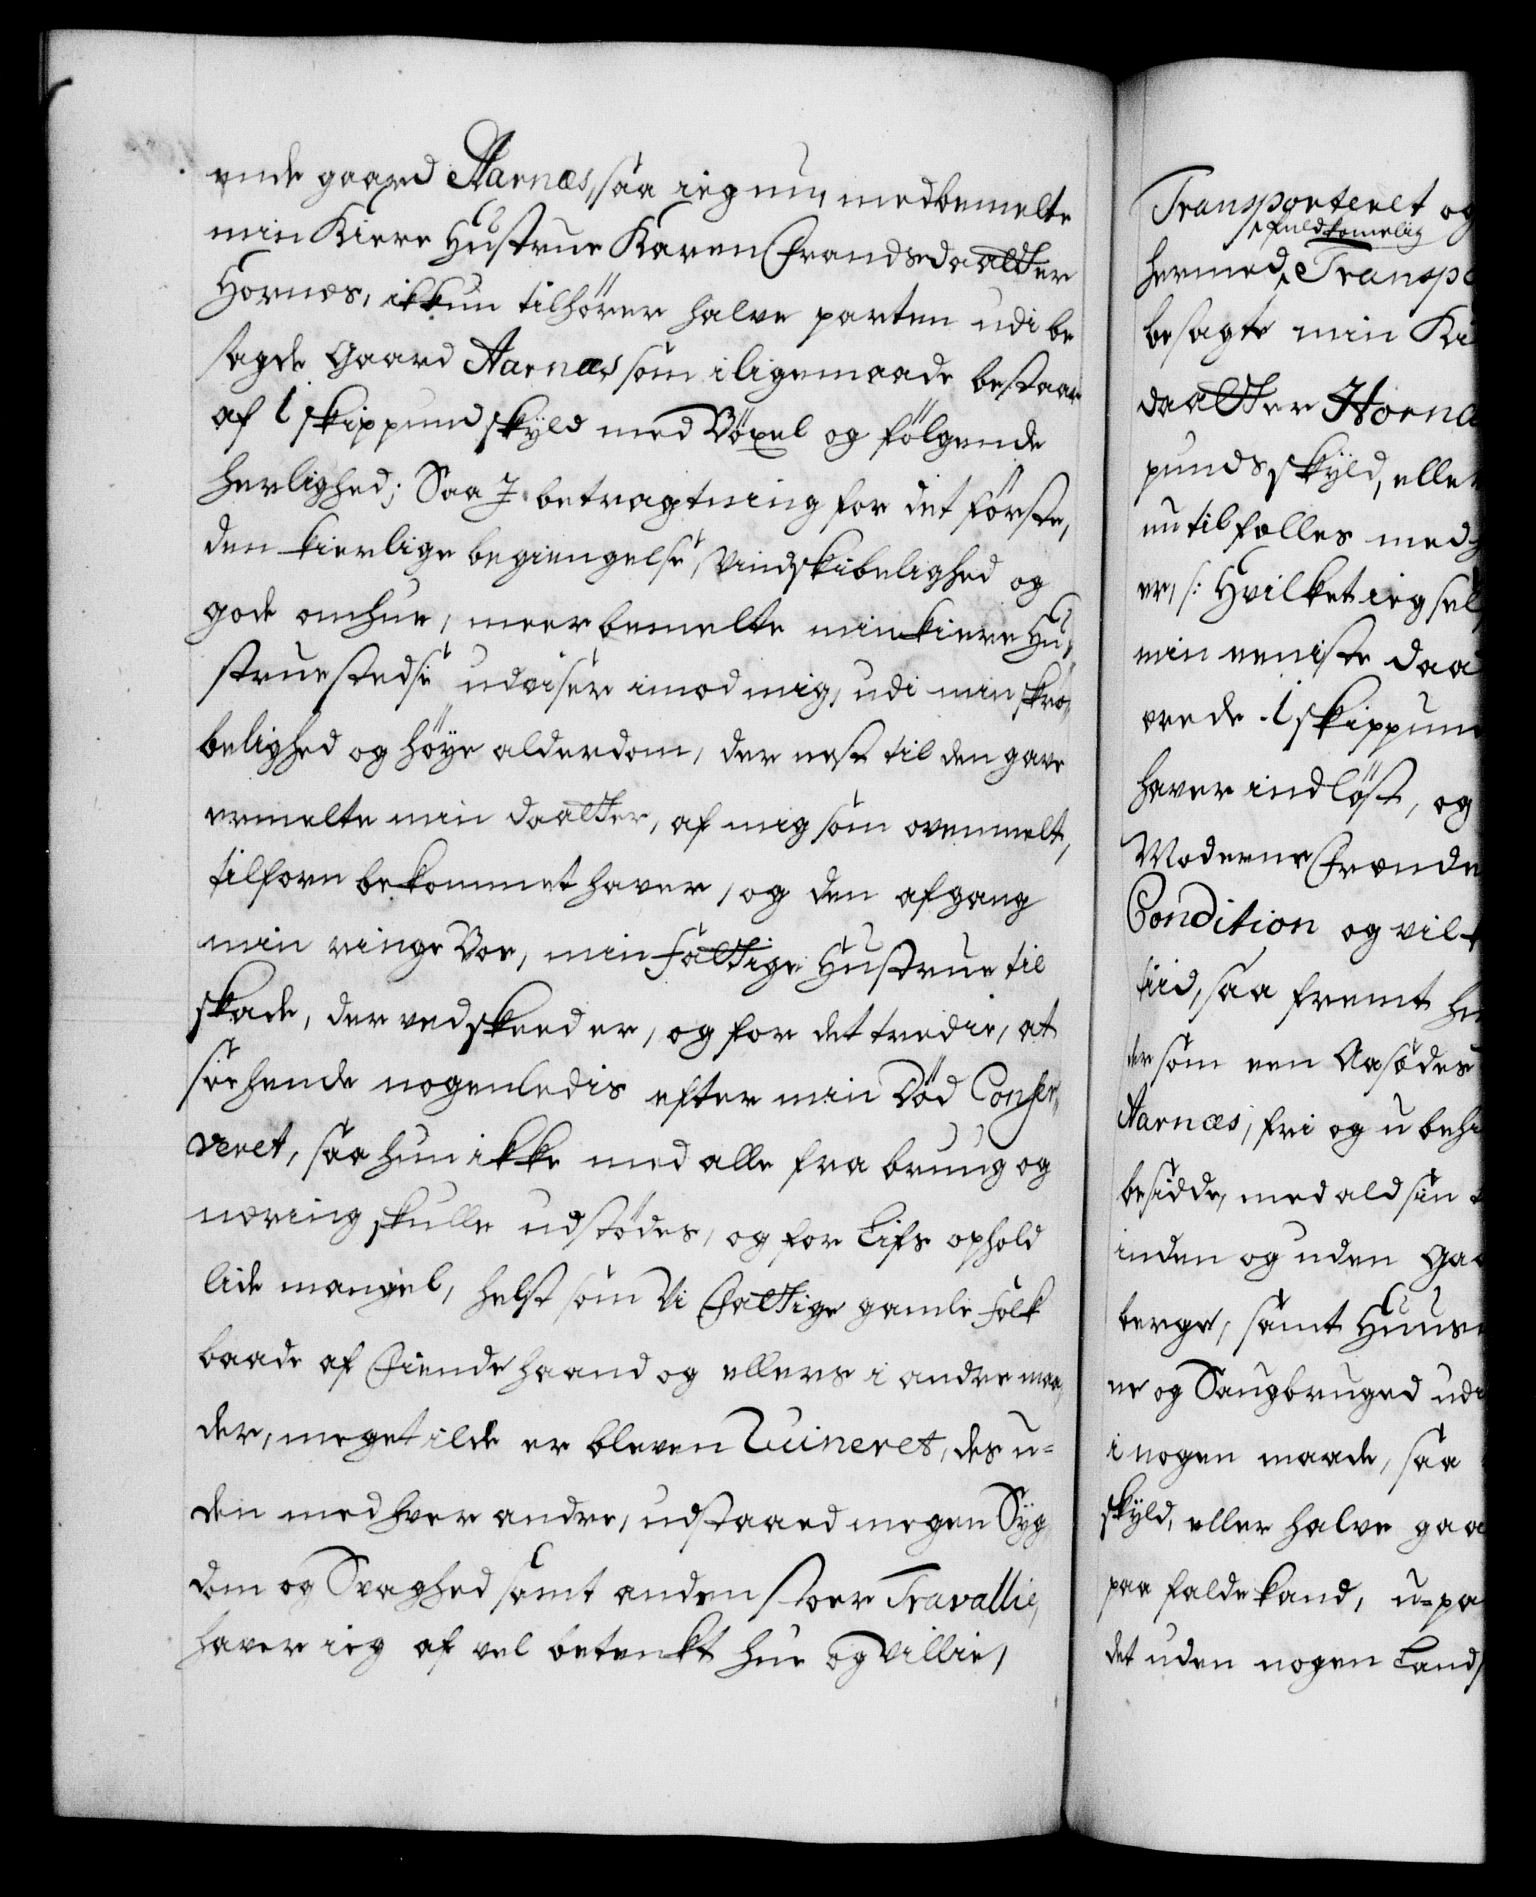 ende gaard Aarnæs, saa ieg nu, med bemelte
min Kiere Hustrue Karen Frandsdaatter
Hornæs, ikkun tilhører halve parten udi be
sagde Gaard Aarnæs som i ligemaade bestaar
af 1 skippund skyld med Böxel og følgende
herlighed; Saa J betragtning for det første,
den kierlige begiengelse, Vindskibelighed og
gode omhue, meerbemelte min kiere Hu,
strue stedse udviser imod mig, udi min skrø,
belighed og høye alderdom, der nest til den gave
ermelte min daatter, af mig som ovenmelt,
tilforn bekommet haver, og den afgang
min ringe Boe, min fattige Hustrue til
skade, der ved skeed er, og for det tredie, at
see hende nogenledis efter min Død Conser,
veret, saa hun ikke med alle fra brug og
næring skulle udstødes, og for Lifs ophold
lide mangel, helst som Vi Fattige gamle folk
baade af Fiende haand og ellers i andre maa,
der, meget ilde er bleven Ruineret, des u=
den med hver andre, udstaaed megen Syg,
dom og Svaghed samt anden stoer Travallie,
haver ieg af vel betenkt hue og Villie,
Transporteret og
fuldkomelig
hermed Transp
besagte min Ki
daatter Horna
punds skyld, eller
nu tilfælles med
er, /: Hvilket ieg sel
min eeniste daa
ærede 1 skippun
haver indløst, og
Moderne Frende
Condition og vil
tiid, saa fremt
der som een Aasædes
Aarnæs, fri og ubehi
besidde, med ald sin
inden og uden Gaa
berge, samt Huuse
ne og Saugbruged udi
i nogen maade, saa
skyld, eller halve gaa
paa falde kand, u=pa
det uden nogen Lands